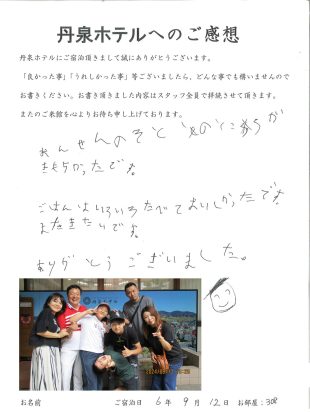 丹泉ホテルへのご感想
丹泉ホテルにご宿泊頂きまして誠にありがとうございます。
「良かった事」「うれしかった事」等ございましたら、どんな事でも構いませんので
お書きください。お書き頂きました内容はスタッフ全員で拝読させて頂きます。
またのご来館を心よりお待ち申し上げております。
おんせんのそと
きもちかったです。
ごはんはいろいろたべておいしかったです。
またきたいです。
ありがとうございました。
お名前 ご宿泊日 6年 9月 12日 お部屋:308